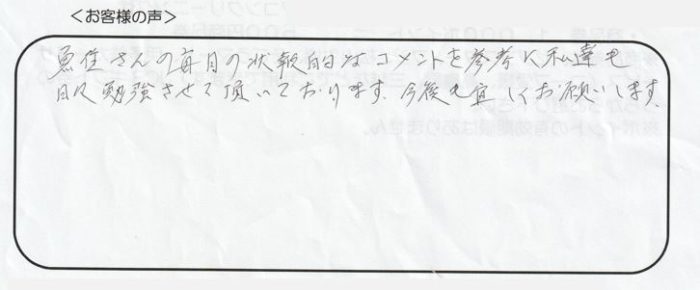 ＜お客様の声＞
魚住さんの毎月の状報的なコメントを参考に私達も
日々勉強させて頂いております。今後も宜しくお願いします。